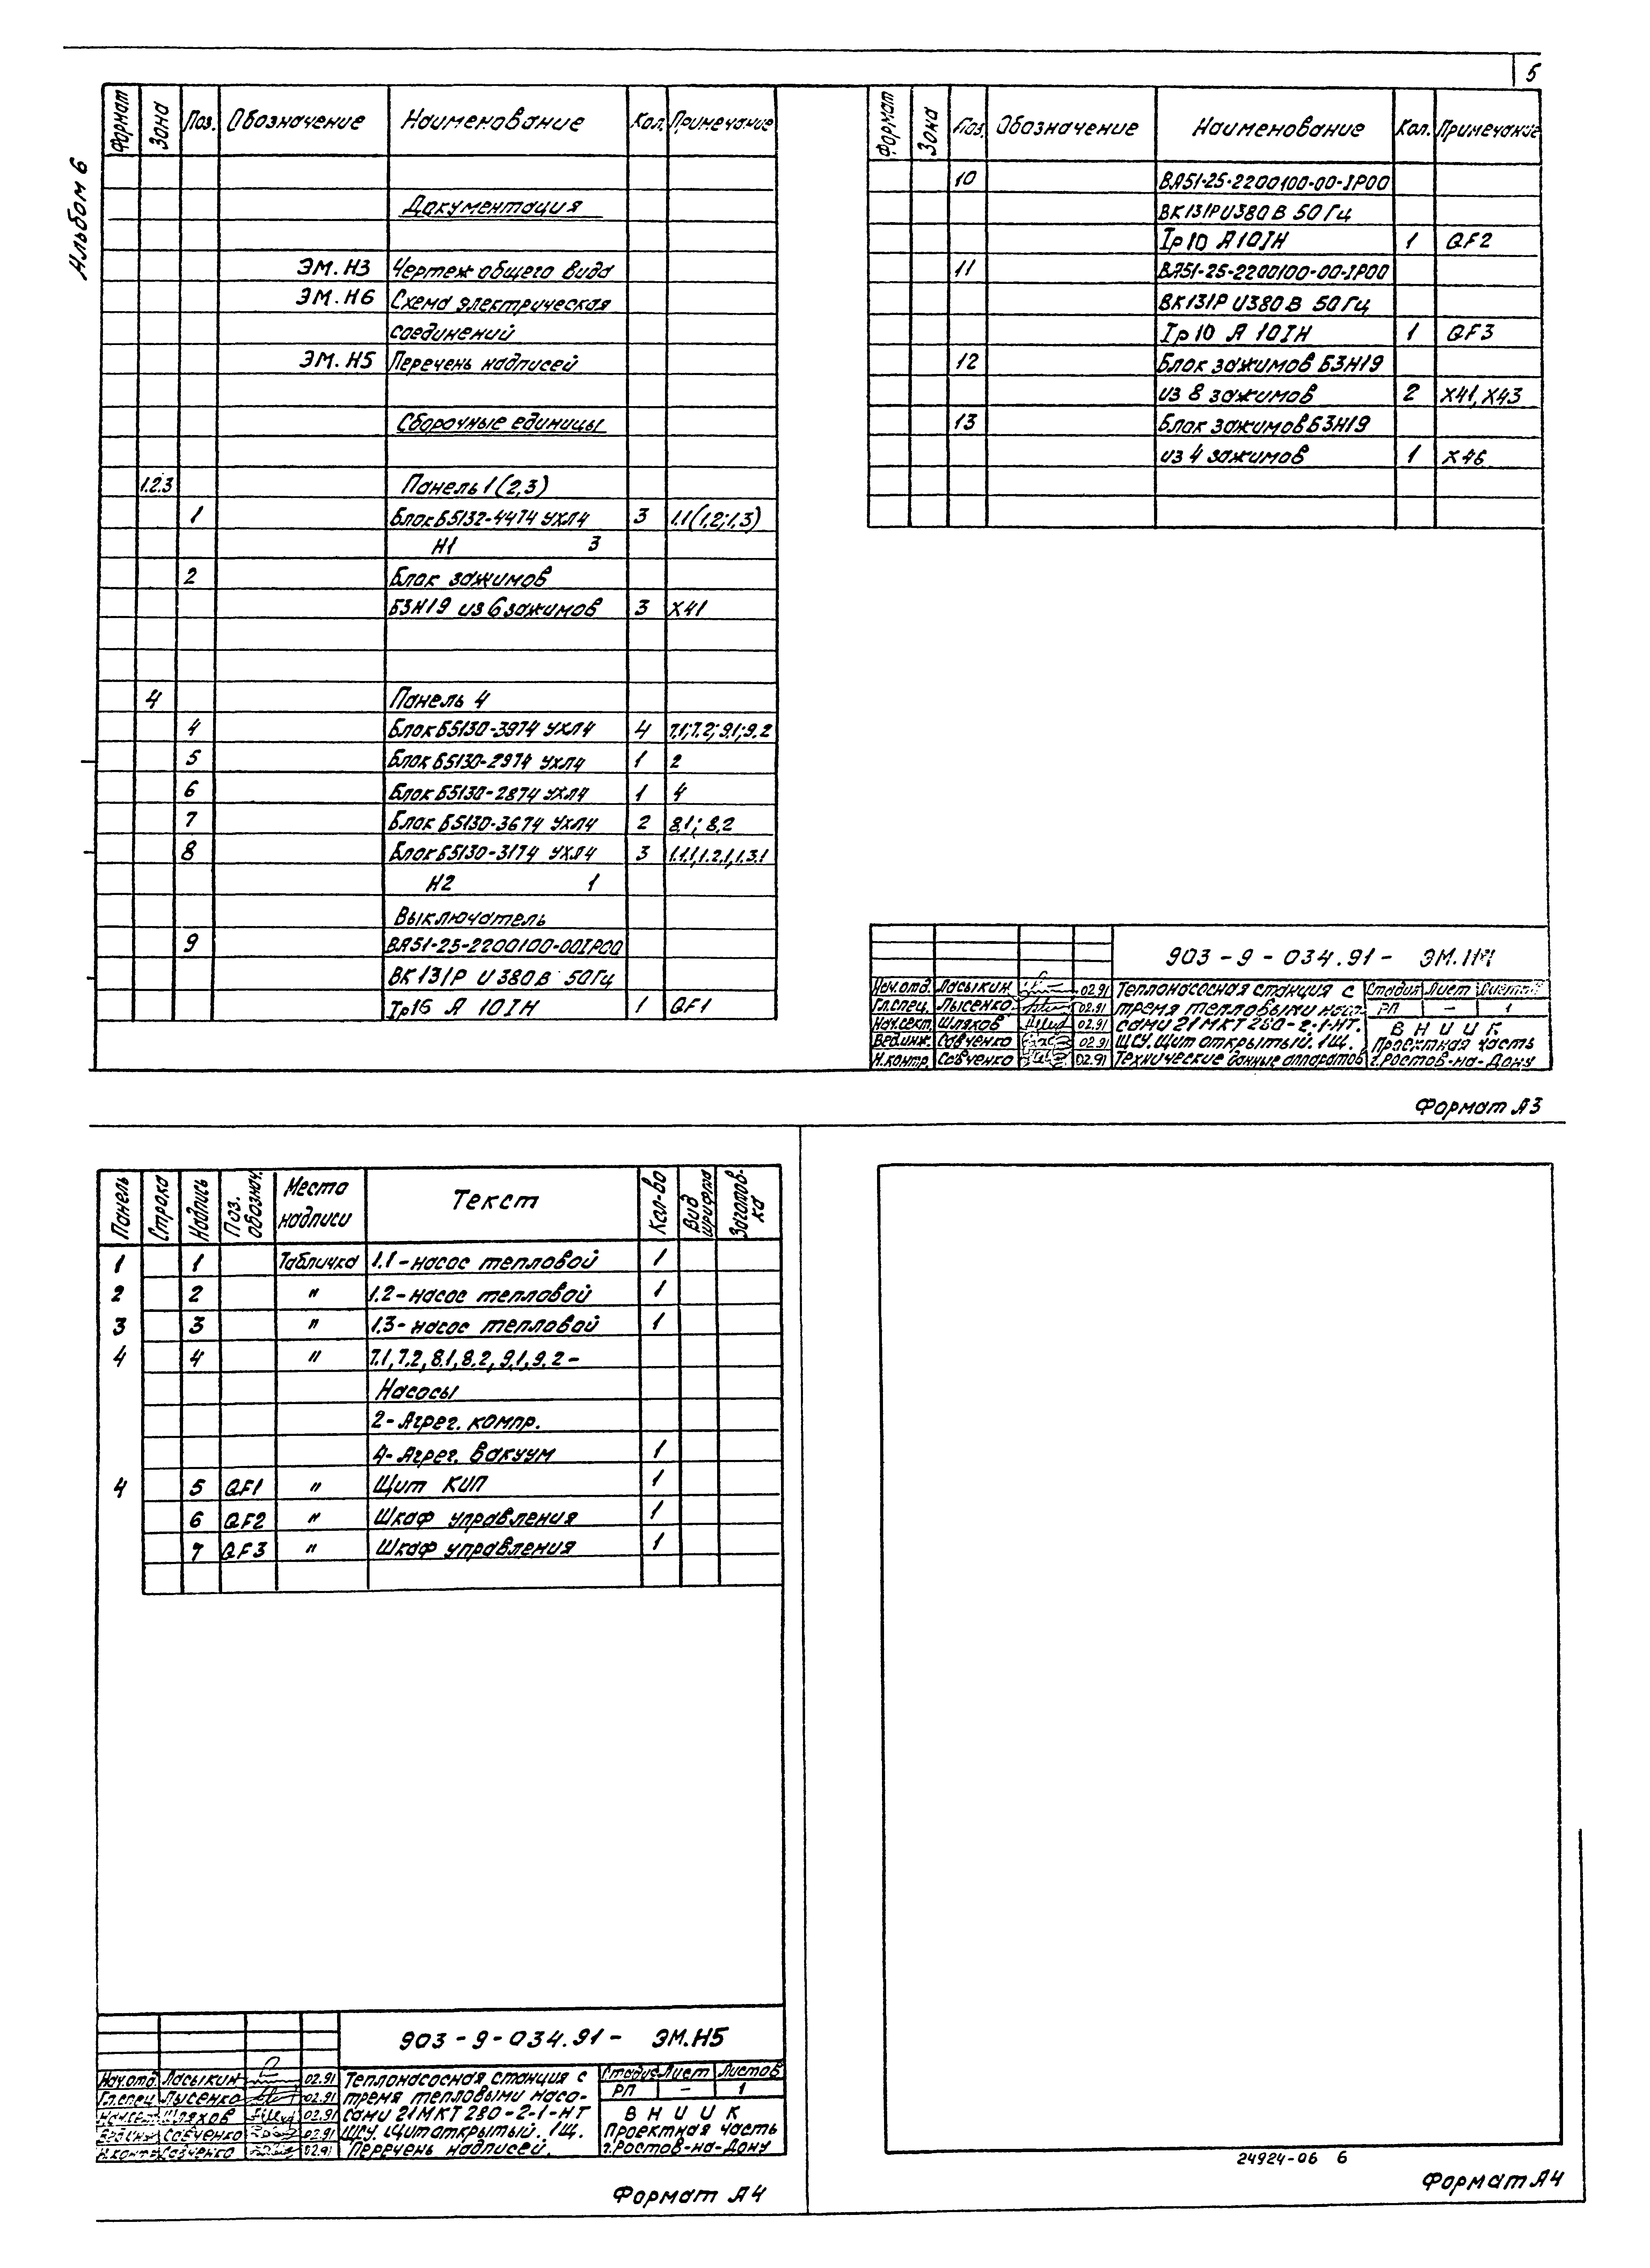 5
Альбом 6
Формат Зона Поз. Обозначение Наименование Кол. Примечание
Документация
ЭМ.Н3 Чертеж общего вида
ЭМ.Н6 Схема электрическая
соединений
ЭМ.Н5 Перечень надписей
Сборочные единицы
1.2.3 Панель 1(2,3)
1 Блок Б5132-4474 УХЛ4 3 1.1(1.2;1.3)
Н1 3
2 Блок зажимов
БЗН19 из 6 зажимов 3 Х41
4 Панель 4
4 Блок Б5130-3974 УХЛ4 4 7.1;7.2; 9.1;9.2
5 Блок Б5130-2974 УХЛ4 1 2
6 Блок Б5130-2874 УХЛ4 1 4
7 Блок Б5130-3674 УХЛ4 2 8.1; 8.2
8 Блок Б5130-3174 УХЛ4 3 1.1.1,1.2.1,1.3.1
Н2 1
Выключатель
9 ВА51-25-2200100-00IP00
ВК131Р U380В 50Гц
Iр16 А 10IН 1 QF1
Формат Зона Поз. Обозначение Наименование Кол. Примечание
10 ВА51-25-2200100-00-IP00
ВК131Р U380В 50Гц
Iр10 А10IН 1 QF2
11 ВА51-25-2200100-00-IP00
ВК131Р U380В 50Гц
Iр10 А 10IН 1 QF3
12 Блок зажимов БЗН19
из 8 зажимов 2 Х41, Х43
13 Блок зажимов БЗН19
из 4 зажимов 1 Х46
903-9-034.91- ЭМ.
Нач.отд. Ласыкин 02.91 Теплонасосная станция с Стадия Лист Листов
Гл.спец. Лысенко 02.91 тремя тепловыми насо- РП – 1
Нач.сект. Шляхов 02.91 сами 21МКТ 280-2-1-НТ. ВНИИК
Вед.инж. Савченко 02.91 ЩСУ. Щит открытый. 1Щ. Проектная часть
Н.контр. Савченко 02.91 Технические данные аппаратов г.Ростов-на-Дону
Формат А3
Панель Строка Надпись Поз. обознач. Место надписи Текст Кол-во Вид шрифта Заготов-ка
1 1 Табличка 1.1-насос тепловой 1
2 2 " 1.2-насос тепловой 1
3 3 " 1.3-насос тепловой 1
4 4 " 7.1,7.2,8.1,8.2,9.1,9.2-
Насосы
2-Агрег. компр.
4-Агрег. вакуум 1
4 5 QF1 " Щит КИП 1
6 QF2 " Шкаф управления 1
7 QF3 " Шкаф управления 1
903-9-034.91- ЭМ.Н5
Нач.отд. Ласыкин 02.91 Теплонасосная станция с Стадия Лист Листов
Гл.спец Лысенко 02.91 тремя тепловыми насо- РП – 1
Нач.сект Шляхов 02.91 сами 21МКТ 280-2-1-НТ ВНИИК
Вед.инж Савченко 02.91 ЩСУ. Щит открытый. 1Щ. Проектная часть
Н.контр Савченко 02.91 Перечень надписей. г.Ростов-на-Дону
Формат А4
24924-06 6
Формат А4